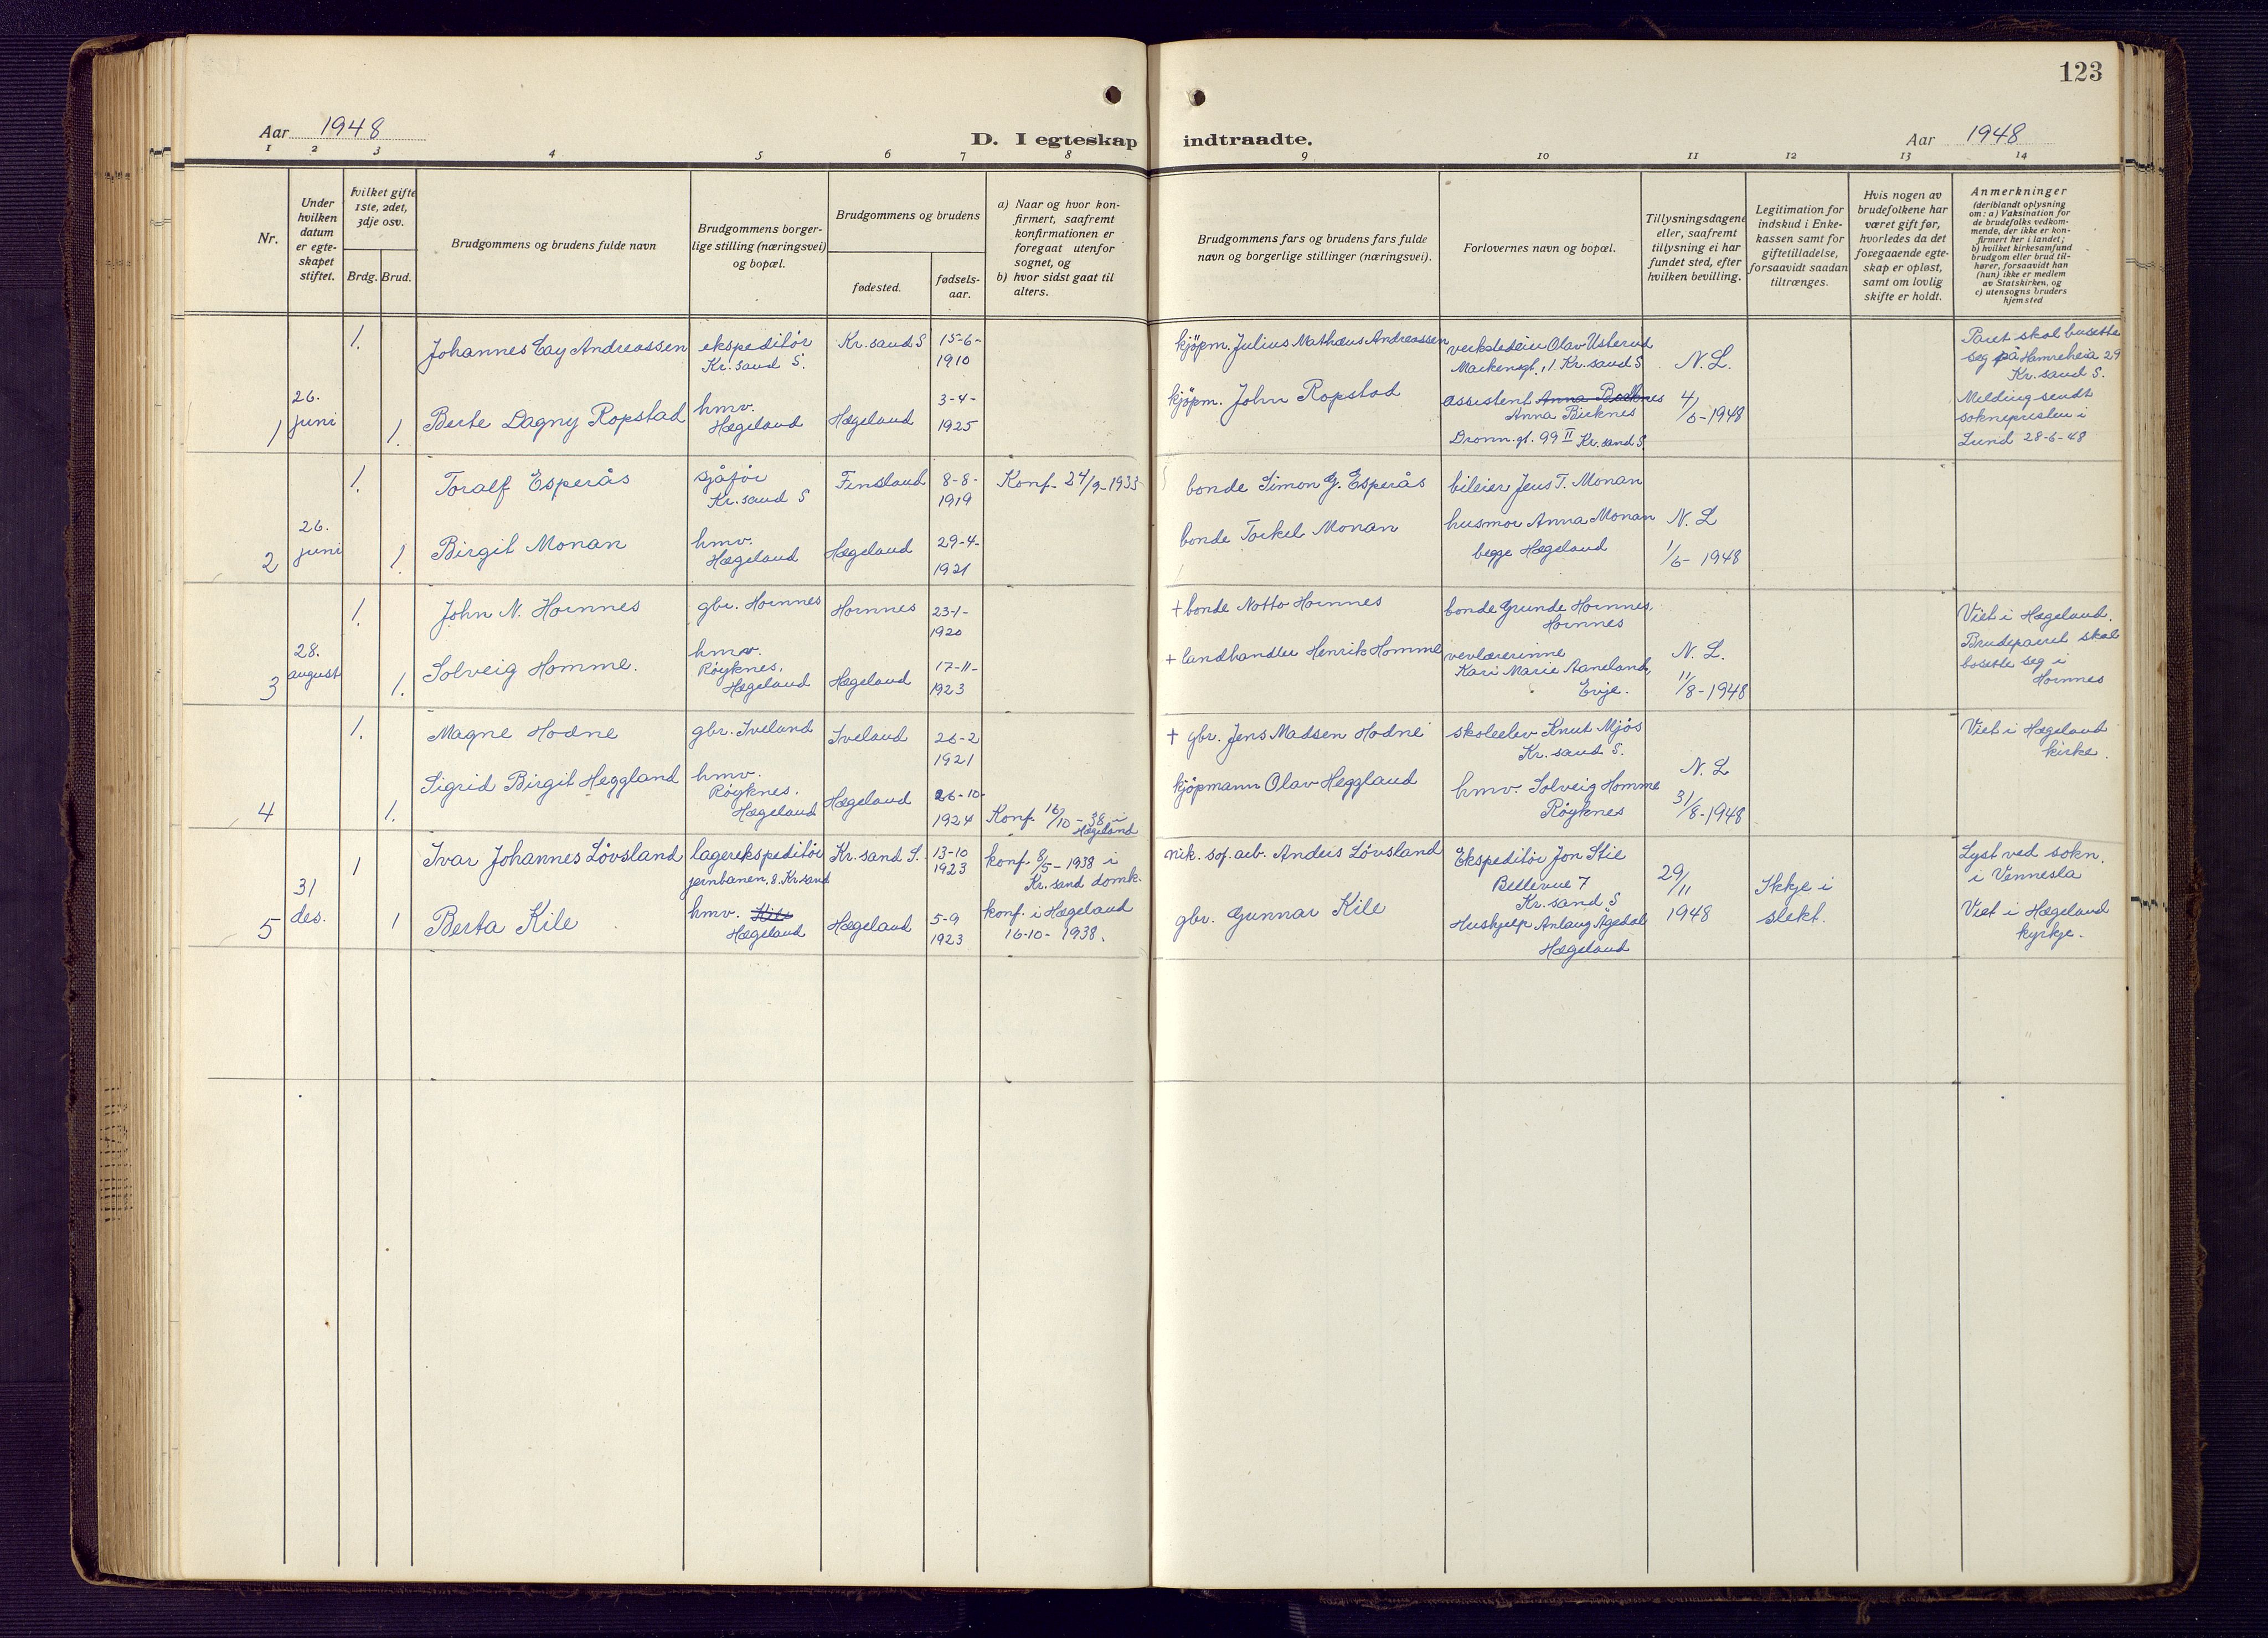 123
Aar 1948
D. I egteskap indtraadte.
Aar 1948
1 2 3 4 5 6 7 8 9 10 11 12 13 14
Nr.
Under
hvilken
datum
er egte-
skapet
stiftet.
hvilket gifte
1ste, 2det,
3dje osv.
Brdg. Brud.
Brudgommens og brudens fulde navn
Brudgommens borger-
lige stilling (næringsvei)
og bopæl.
Brudgommens og brudens
fødested.
fødsels-
aar.
a) Naar og hvor kon-
firmert, saafremt
konfirmationen er
foregaat utenfor
sognet, og
b) hvor sidst gaat til
alters.
Brudgommens fars og brudens fars fulde
navn og borgerlige stillinger (næringsvei).
Forlovernes navn og bopæl.
Tillysningsdagene
eller, saafremt
tillysning ei har
fundet sted, efter
hvilken bevilling.
Legitimation for
indskud i Enke-
kassen samt for
giftetilladelse,
forsaavidt saadan
tiltrænges.
Hvis nogen av
brudefolkene har
været gift før,
hvorledes da det
foregaaende egte-
skap er opløst,
samt om lovlig
skifte er holdt.
Anmerkninger
(deriblandt oplysning
om: a) Vaksination for
de brudefolks vedkom-
mende, der ikke er kon-
firmert her i landet;
b) hvilket kirkesamfund
brudgom eller brud til-
hører, forsaavidt han
(hun) ikke er medlem
av Statskirken, og
c) utensogns bruders
hjemsted
1
26.
juni
1.
Johannes Cay Andreassen
ekspeditör
Kr.sand S.
Kr.sand S
15-6-
1910
kjöpm. Julius Mathæus Andreassen
verkstedeier Olav Usterud
Markensgt. 11 Kr.sand S
N. L.
4/6-1948
Paret skal busette
seg på Hamreheia 29
Kr.sand S.
Melding sendt
soknepresten i
Lund 28-6-48
1.
Berte Dagny Ropstad
hmv.
Hægeland
Hægeland
3-4-
1925
kjöpm. John Ropstad
assistent Anna Birknes
Anna Birknes
Dronn.gt. 99 II Kr.sand S.
2
26.
juni
1.
Toralf Esperås
sjåför
Kr.sand S
Finsland
8-8-
1919
Konf. 24/9-1933
bonde Simon G. Esperås
bileier Jens T. Monan
1.
Birgit Monan
hmv.
Hægeland
Hægeland
29-4-
1921
bonde Torkel Monan
husmor Anna Monan
begge Hægeland
N. L
1/6-1948
3
28.
august
1.
John N. Hornnes
gbr. Hornnes
Hornnes
23-1-
1920
+ bonde Notto Hornnes
bonde Grunde Hornnes,
Hornnes
1.
Solveig Homme.
hmv.
Röyknes,
Hægeland
Hægeland
17-11-
1923
+ landhandler Henrik Homme
vevlærerinne
Kari Marie Aaneland,
Evje.
N. L.
11/8-1948
Viet i Hægeland.
Brudeparet skal
bosette seg i
Hornnes
4
1.
Magne Hodne
gbr. Iveland
Iveland
26-2
1921
+ gbr. Jens Madsen Hodne
skoleelev Knut Mjös
Kr.sand S.
1.
Sigrid Birgit Heggland
hmv.
Röyknes.
Hægeland
Hægeland
26-10-
1924
Konf. 16/10-38 i
Hægeland
kjöpmann Olav Heggland
hmv. Solveig Homme
Röyknes
N. L
31/8-1948
Viet i Hægeland
kirke.
5
31
des.
1
Ivar Johannes Lövsland
lagerekspeditör
jernbanen. 8. Kr.sand
Kr.sand S.
13-10
1923
konf. 8/5-1938 i
Kr.sand domk.
nik. arb. Anders Lövsland
Ekspeditör Jon Stie
Bellevue 7
Kr.sand S
29/11
1948
Ikkje i
slekt.
Lyst ved sokn.
i Vennesla
1
Berta Kile
hmv. Kile
Hægeland
Hægeland
5-9
1923
konf. i Hægeland
16-10-1938.
gbr. Gunnar Kile
Hushjelp Anlaug Ågedal
Hægeland
Viet i Hægeland
kyrkje.